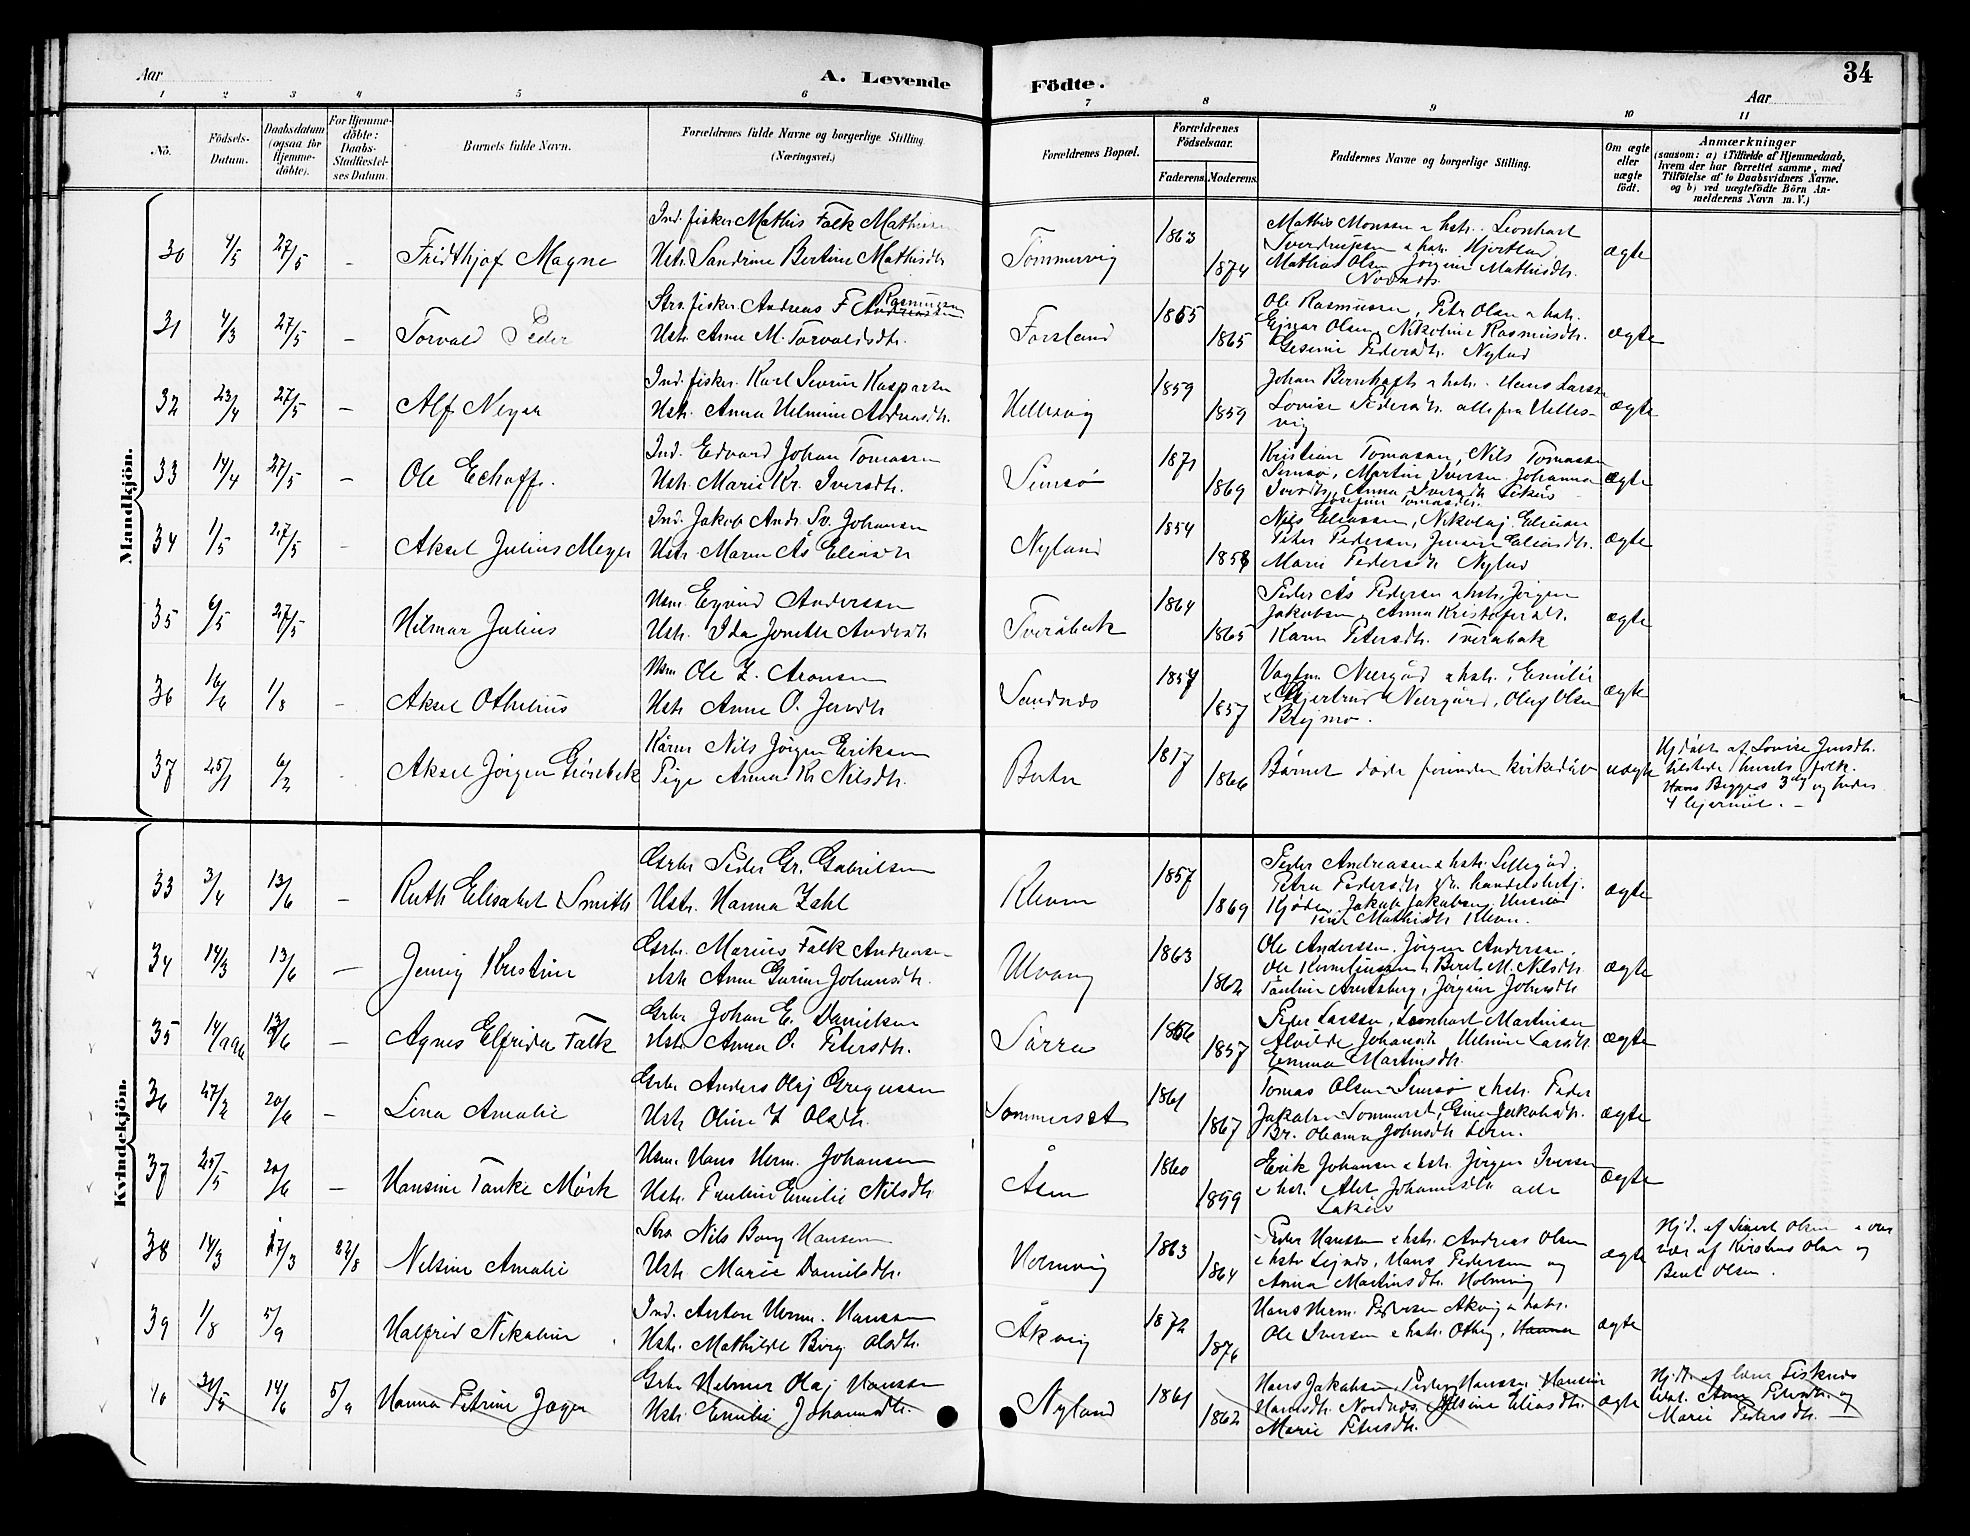 Aar
A. Levende
Födte.
34
Aar
1 2 3 4 5 6 7 8 9 10 11
No.
Födsels-Datum.
Daabsdatum (ogsaa for Hjemme-döbte).
For Hjemme-döbte: Daabs-Stadfæstel-ses Datum.
Barnets fulde Navn.
Forældrenes fulde Navne og borgerlige Stilling (Næringsvei.)
Forældrenes Bopæl.
Forældrenes Födselsaar.
Faderens. Moderens.
Faddernes Navne og borgerlige Stilling.
Om ægte eller uægte födt.
Anmærkninger
(saasom: a) i Tilfælde af Hjemmedaab, hvem der har forrettet samme, med Tilföielse af to Daabsvidners Navne. og b) ved uægtefödte Börn An-melderens Navn m. V.)
Mandkjön.
30 4/5 27/5 - Fridthjof Magne
Ind. fisker Mathis Falk Mathissen
Ustr. Sandrine Bertine Mathisdtr.
Tømmervig 1863 1874
Mathis Monssen & hstr. Leonhart
Mathias Olsen Jørgine Mathisdtr.
ægte
31 4/3 27/5 - Torvald Peder
Stra. fisker Andreas F Andreassen Rasmussen
Ustr. Anne M. Torvaldsdtr.
Forsland 1865 1865
Ole Rasmussen, Petr Olsen & hstr.
Ejnar Olsen, Nikoline Rasmusdtr.
Gesine Pedersdtr. Nylund
ægte
32 23/4 27/5 - Alf Meyer
Ind. fisker. Karl Sevrin Kaspersen
Ustr. Anna Helmine Andreasdtr.
Hellesvig 1859 1859
Johan Bernhoft & hstr. Hans Larssen
Lovise Pedersdtr. alle fra Helles-
vig
ægte
33 14/4 27/5 - Ole Echoff.
Ind. Edvard Johan Tomassen
Ustr. Marie Kr. Iversdtr.
Simsø 1871 1869
Kristian Tomassen, Nils Tomassen
Simsø, Martin Iversen Johanna
Iversdtr, Anna Iversdtr
ægte
34 1/5 27/5 - Aksel Julius Meyer
Ind. Jakob Andr. Sv. Johansen
Ustr. Maren Ås Eliasdtr
Nyland 1854 1858
Nils Eliassen, Nikolaj Eliassen
Peter Pedersen, Jensine Eliasdtr.
Marie Pedersdtr Nylund
ægte
35 6/5 27/5 Hilmar Julius
Usm. Eyvind Anderssen
Ustr. Ida Jonette Andersdtr
Tveråbæk 1864 1865
Peder Ås Pedersen & hstr, Jørgen
Jakobsen, Anna Kristofersdtr.
Karen Petersdtr. Tveråbæk
ægte
36 16/6 1/8 - Aksel Othelius
Usm Ole Z. Aronsen
Ustr Anne O. Jensdtr
Sandnes 1857 1857
Vagtm. Neergård & hstr, Emilie
& Hjertrud Neergård, Oluf Olsen
Brejmo.
ægte
37 25/1 6/2 Aksel Jørgen Grönbek
Kårm Nils Jørgen Eriksen
Pige Anna Kr Nilsdtr.
Botn 1817 1866
Barnet døde forinden kirkedåb
uægte
Hjdöbt af Lovise Jensdtr.
tilstede husets folk.
Kvindekjön.
33 3/4 13/6 - Ruth Elisabet Smith
Gsrbr Peder Gr. Gabrielsen
Ustr. Hanna Zahl
Kleven 1857 1869
Peder Andreassen & hstr. Lillegård.
Petra Pedersdtr
Jakob Jakobsen
ægte
34 14/3 13/6 - Jenny Kristine
Gsrbr. Marius Falk Andreassen
Ustr Anne Gurine Johansdtr.
Ulvang 1863 1862
Ole Anderssen. Jørgen Anderssen,
Ole Korneliussen & Beret M. Nilsdtr
Pauline Arntsberg, Jørgine Johansdtr
ægte
35 14/ 13/6 - Agnes Elfrida Falk
Gsrbr Johan E. Danielsen
Ustr Anna O. Petersdtr.
Sörra 1856 1857
Peder Larssen, Leonhart Martinsen
Alvilde Johansdtr Helmine Larsdtr.
Emma Martinsdtr.
ægte
36 27/2 20/6 - Lina Amalie
Gsrbr Anders Olaj Gregussen
Ustr Oline Z Olsdtr.
Sommerset 1861 1867
Tomas Olsen Simsø & hstr. Peder
Jakobsen Sommerset, Gine Jakobsdtr.
Br. Oleanna Johnsdtr
ægte
37 25/5 20/6 - Hansine Tanke Mörk
Usm. Hans Herm. Johansen
Ustr. Pauline Emilie Nilsdtr.
Åsen 1860 1899
Erik Johansen & hstr. Jørgen Iversen
& hstr. Alet Johannesdtr alle
ægte
38 14/3 17/3 22/8 Nelsine Amalie
Stra Nils Borg Hansen
Ustr. Marie Danielsdtr.
Holmvig 1863 1864
Peder Hanssen & hstr. Andreas Olsen
& hstr Hans Pedersen og
Anna Martinsdtr. Holmvig
ægte
Hjd. af Sivert Olsen
vær af Kirstine Olsen og
Berit Olsen.
39 1/8 5/9 Halfrid Nikoline
Ind. Anton Herm. Hanssen
Ustr. Mathilde Birg. Olsdtr.
Åkvig 1872 1876
Hans Herm. Pedersen Åkvig & hstr.
Ole Iversen & hstr. Othey, Hanna
ægte
40 31/5 14/6 5/9 Hanna Petrine Jager
Gsrbr Helmer Olaj Hanssen
Ustr. Emilie Johannesdtr.
Nyland 1861 1862
Hans Jakobsen, Peder Hanssen, Hansine
Hansdtr. Nordnes, Jensine Eliasdtr.
Marie Petersdtr.
ægte
Marie Pedersdtr.